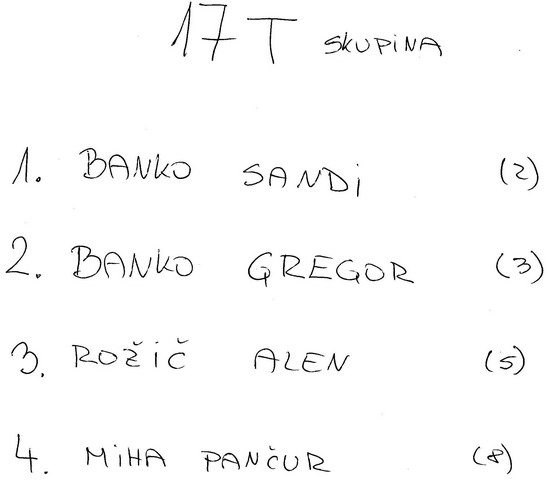 17T SKUPINA
1. BANKO SANDI (2)
2. BANKO GREGOR (3)
3. ROŽIČ ALEN (5)
4. MIHA PANČUR (8)